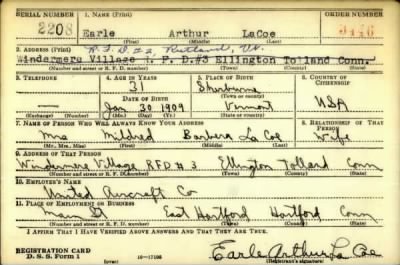 SERIAL NUMBER 1. NAME (Print) ORDER NUMBER
2208 Earle Arthur LaCoe
(First) (Middle) (Last)
2. ADDRESS (Print) R.F.D #2, Rutland, Vt.
Windermere Village R. F. D.#3 Ellington Tolland Conn.
(Number and street or R. F. D. number) (Town) (County) (State)
3. TELEPHONE 4. AGE IN YEARS 5. PLACE OF BIRTH 6. COUNTRY OF CITIZENSHIP
31 Sherburne
DATE OF BIRTH (Town or county)
Jan 30 1909 Vermont USA
(Exchange) (Number) (Mo.) (Day) (Yr.) (State or country)
7. NAME OF PERSON WHO WILL ALWAYS KNOW YOUR ADDRESS 8. RELATIONSHIP OF THAT PERSON
Mrs Mildred Barbera La Coe Wife
(Mr., Mrs., Miss) (First) (Middle) (Last)
9. ADDRESS OF THAT PERSON
Windermere Village RFD #3 Ellington Tolland Conn
(Number and street or R. F. D. number) (Town) (County) (State)
10. EMPLOYER'S NAME
United Aircraft Co
11. PLACE OF EMPLOYMENT OR BUSINESS
Main St East Hartford Hartford Conn
(Number and street or R. F. D. number) (Town) (County) (State)
I AFFIRM THAT I HAVE VERIFIED ABOVE ANSWERS AND THAT THEY ARE TRUE.
REGISTRATION CARD
D. S. S. Form 1 (over) 16-17105 Earle Arthur La Coe
(Registrant's signature)